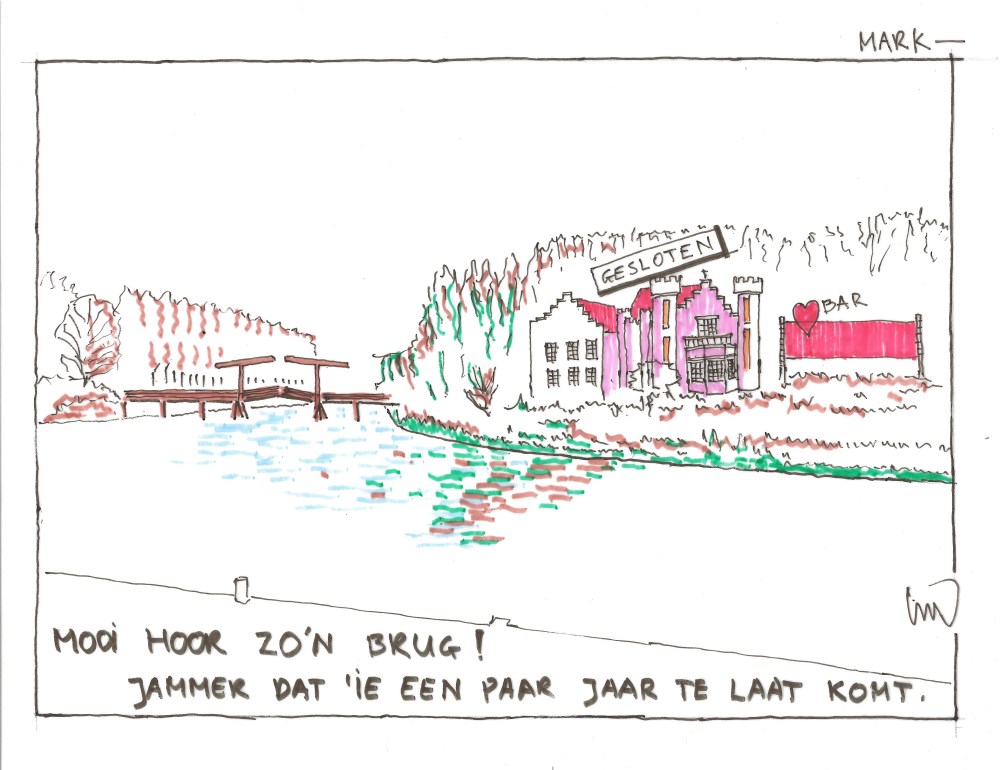 MARK —
GESLOTEN
BAR
MOOI HOOR ZO'N BRUG!
JAMMER DAT 'IE EEN PAAR JAAR TE LAAT KOMT.